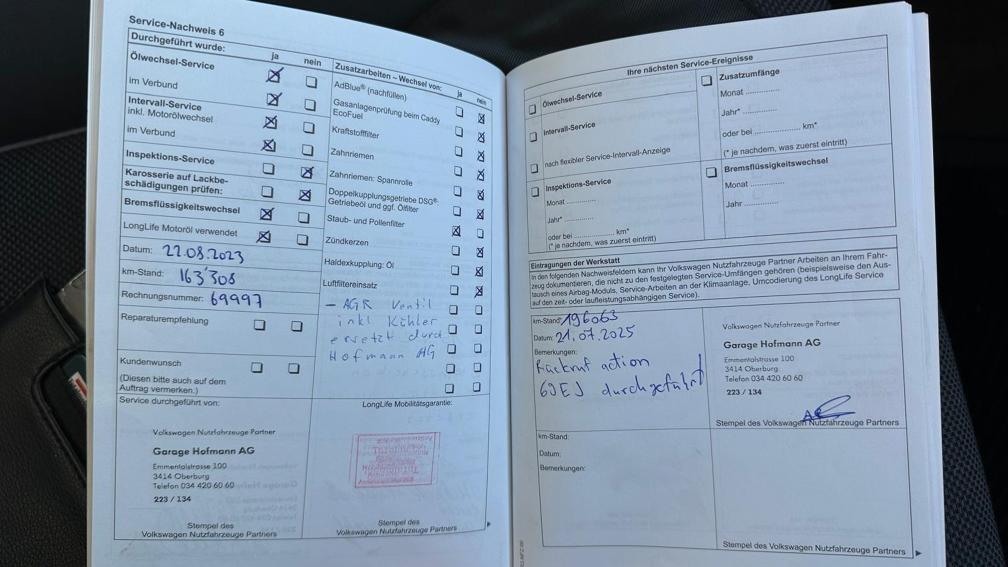 Service-Nachweis 6
Durchgeführt wurde:
ja
nein
Ölwechsel-Service
im Verbund
Intervall-Service
inkl. Motorölwechsel
im Verbund
Inspektions-Service
Karosserie auf Lackbe-
schädigungen prüfen:
Bremsflüssigkeitswechsel
LongLife Motoröl verwendet
Datum: 22.08.2023
km-Stand: 163'308
Rechnungsnummer: 69997
Reparaturempfehlung
Kundenwunsch
(Diesen bitte auch auf dem
Auftrag vermerken.)
Service durchgeführt von:
Volkswagen Nutzfahrzeuge Partner
Garage Hofmann AG
Emmentalstrasse 100
3414 Oberburg
Telefon 034 420 60 60
223 / 134
Stempel des
Volkswagen Nutzfahrzeuge Partners
Zusatzarbeiten – Wechsel von:
ja
nein
AdBlue® (nachfüllen)
Gasanlagenprüfung beim Caddy
EcoFuel
Kraftstofffilter
Zahnriemen
Zahnriemen: Spannrolle
Doppelkupplungsgetriebe DSG®-
Getriebeöl und ggf. Ölfilter
Staub- und Pollenfilter
Zündkerzen
Haldexkupplung: Öl
Luftfiltereinsatz
- AGR Ventil
inkl Kühler
ersetzt durch
Hofmann AG
LongLife Mobilitätsgarantie:
Stempel des
Volkswagen Nutzfahrzeuge Partners
Ihre nächsten Service-Ereignisse
Ölwechsel-Service
Intervall-Service
nach flexibler Service-Intervall-Anzeige
Inspektions-Service
Monat ..............
Jahr* ..............
oder bei .................. km*
(* je nachdem, was zuerst eintritt)
Zusatzumfänge
Monat ..............
Jahr* ..............
oder bei .................. km*
(* je nachdem, was zuerst eintritt)
Bremsflüssigkeitswechsel
Monat ..............
Jahr ..............
Eintragungen der Werkstatt
In den folgenden Nachweisfeldern kann Ihr Volkswagen Nutzfahrzeuge Partner Arbeiten an Ihrem Fahr-
zeug dokumentieren, die nicht zu den festgelegten Service-Umfängen gehören (beispielsweise den Aus-
tausch eines Airbag-Moduls, Service-Arbeiten an der Klimaanlage, Umcodierung des LongLife Service
auf den zeit- oder laufleistungsabhängigen Service).
km-Stand: 196063
Datum: 21.07.2025
Bemerkungen:
Rückruf action
69EJ durchgeführt
Volkswagen Nutzfahrzeuge Partner
Garage Hofmann AG
Emmentalstrasse 100
3414 Oberburg
Telefon 034 420 60 60
223 / 134
Stempel des Volkswagen Nutzfahrzeuge Partners
km-Stand:
Datum:
Bemerkungen:
Stempel des Volkswagen Nutzfahrzeuge Partners